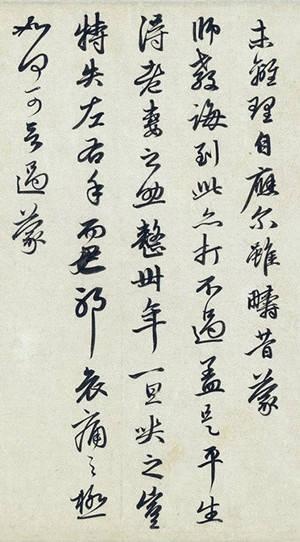 未離理自應尔雖疇昔蒙
師教誨到此亦打不過盖是平生
得老妻之助整卅年一旦哭之豈
特失左右手而已耶哀痛之極
如何可言過蒙